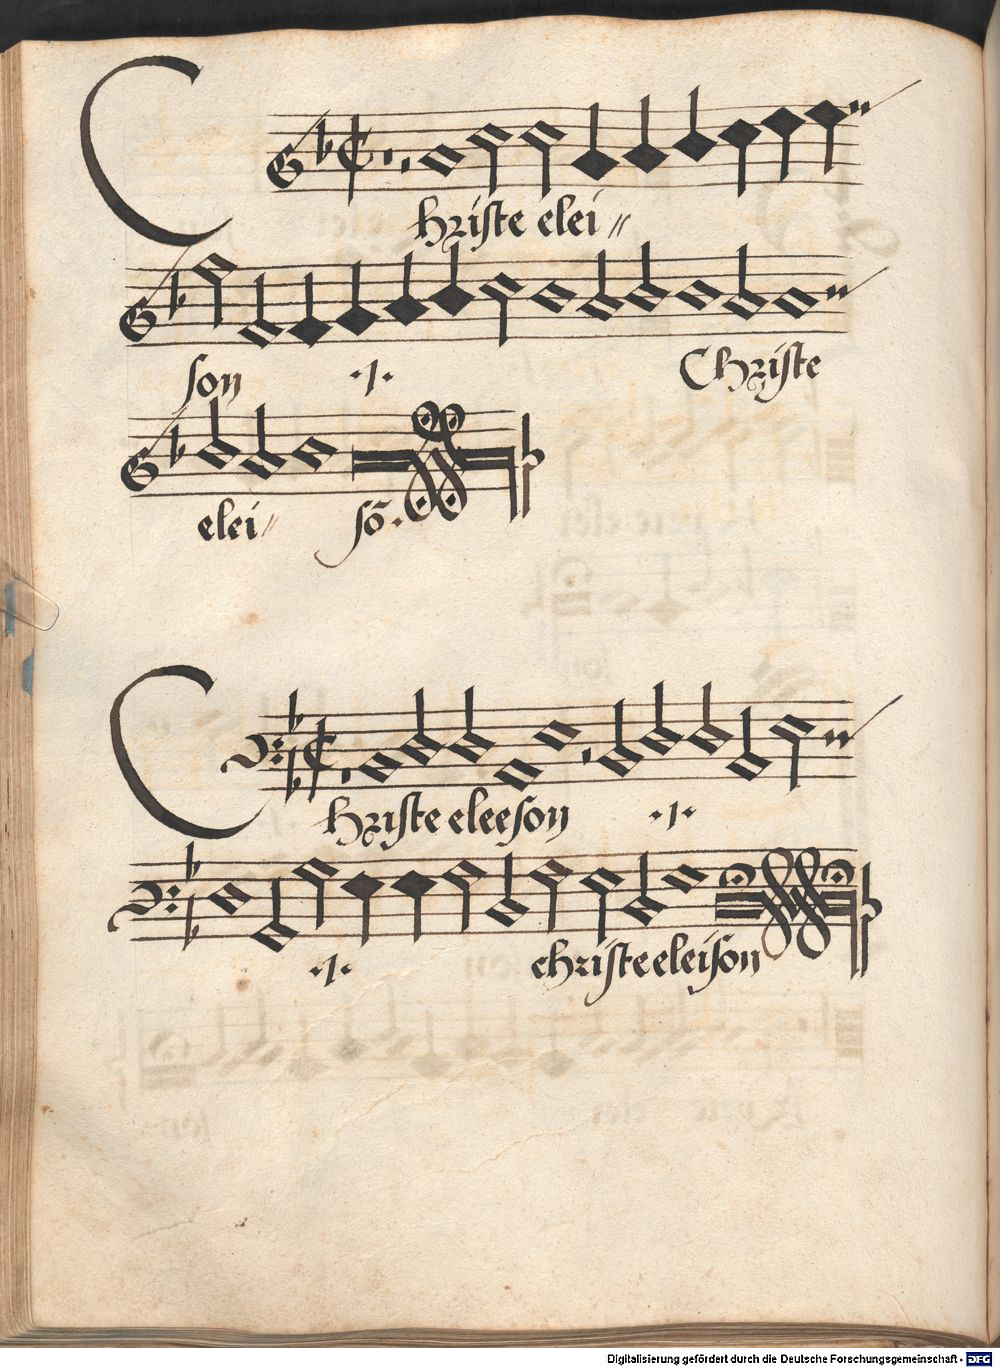 Christe elei〃
son ·I· Christe
elei〃 sō.
Christe eleeson ·I·
·I· christe eleison
Digitalisierung gefördert durch die Deutsche Forschungsgemeinschaft - DFG